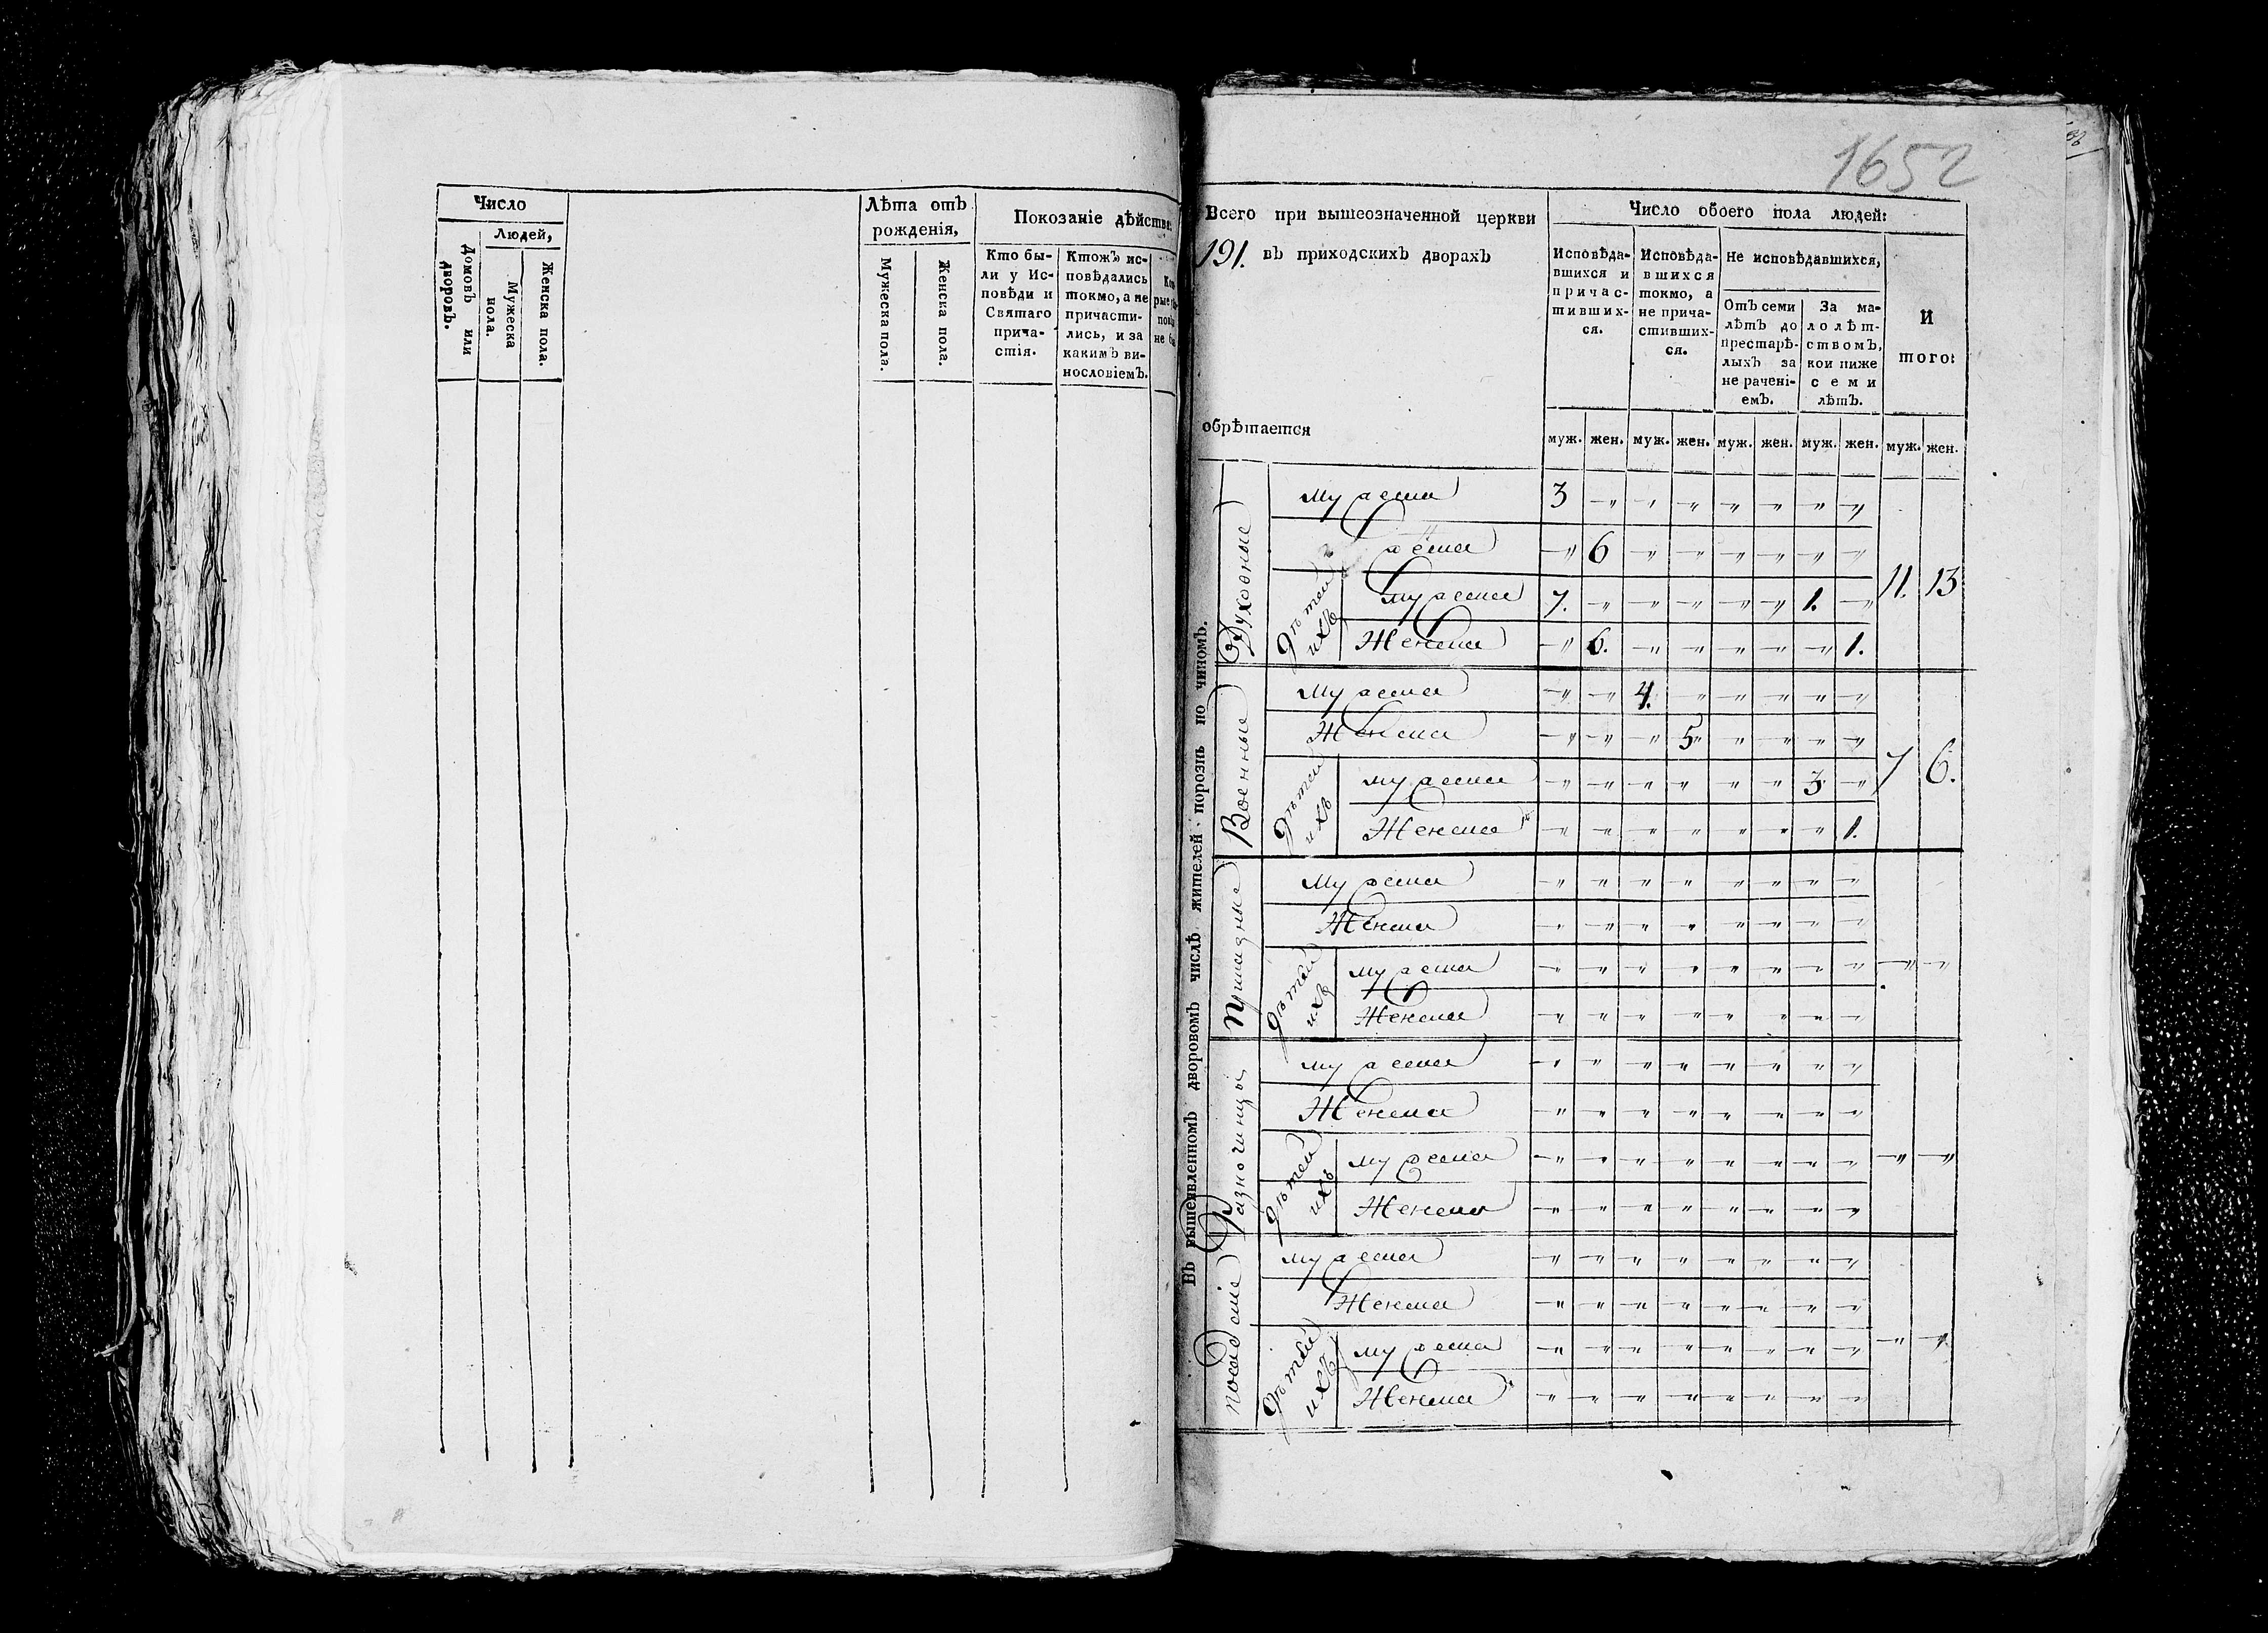 Число
Людей,
Домовъ или дворовъ.
Мужеска пола.
Женска пола.
Лѣта отъ
рожденія,
Мужеска пола.
Женска пола.
Покозаніе дѣйстве
Кто бы-
ли у Ис-
повѣди и
Святаго
прича-
стія.
Ктожъ ис-
повѣдались
токмо, а не
причасти-
лись, и за
какимъ ви-
нословіемъ.
1652
Всего при вышеозначенной церкви
191. въ приходскихъ дворахъ
обрѣтается
Число обоего пола людей:
Исповѣда-
вшихся и
причас-
тивших-
ся.
Исповѣда-
вшихся
токмо, а
не прича-
стивших-
ся.
Не исповѣдавшихся,
Отъ семи
лѣтъ до
престарѣ-
лыхъ за
не раченi-
емъ.
За ма-
лолѣт-
ствомъ,
кои ниже
семи
лѣтъ.
И
того:
муж. жен. муж. жен. муж. жен. муж. жен. муж. жен.
Въ вышеявленномъ дворовомъ числѣ жителей порознь по чиномъ.
Духовные
Мужеска 3 -„ „ -„ -„ -„ -„ -„
Женска -„ 6 -„ -„ -„ -„ -„ -„
Дѣтей ихъ
Мужеска 7. -„ -„ -„ -„ -„ 1. -„
11. 13
Женска -„ 6. -„ -„ -„ -„ -„ 1.
Военные
Мужеска -„ -„ 4. -„ -„ -„ -„ -„
Женска -„ -„ -„ 5 -„ -„ -„ -„
Дѣтей ихъ
Мужеска -„ -„ -„ -„ -„ -„ 3 -„
7 6.
Женска -„ -„ -„ -„ -„ -„ -„ 1.
Приказные
Мужеска -„ -„ -„ -„ -„ -„ -„ -„
Женска -„ -„ -„ -„ -„ -„ -„ -„
Дѣтей ихъ
Мужеска -„ -„ -„ -„ -„ -„ -„ -„ -„ -„
Женска -„ -„ -„ -„ -„ -„ -„ -„
Разночинцы
Мужеска -„ -„ -„ -„ -„ -„ -„ -„
Женска -„ -„ -„ -„ -„ -„ -„ -„
Дѣтей ихъ
Мужеска -„ -„ -„ -„ -„ -„ -„ -„ -„ -„
Женска -„ -„ -„ -„ -„ -„ -„ -„
Посадскіе
Мужеска -„ -„ -„ -„ -„ -„ -„ -„
Женска -„ -„ -„ -„ -„ -„ -„ -„
Дѣтей ихъ
Мужеска -„ -„ -„ -„ -„ -„ -„ -„ -„ -„
Женска -„ -„ -„ -„ -„ -„ -„ -„